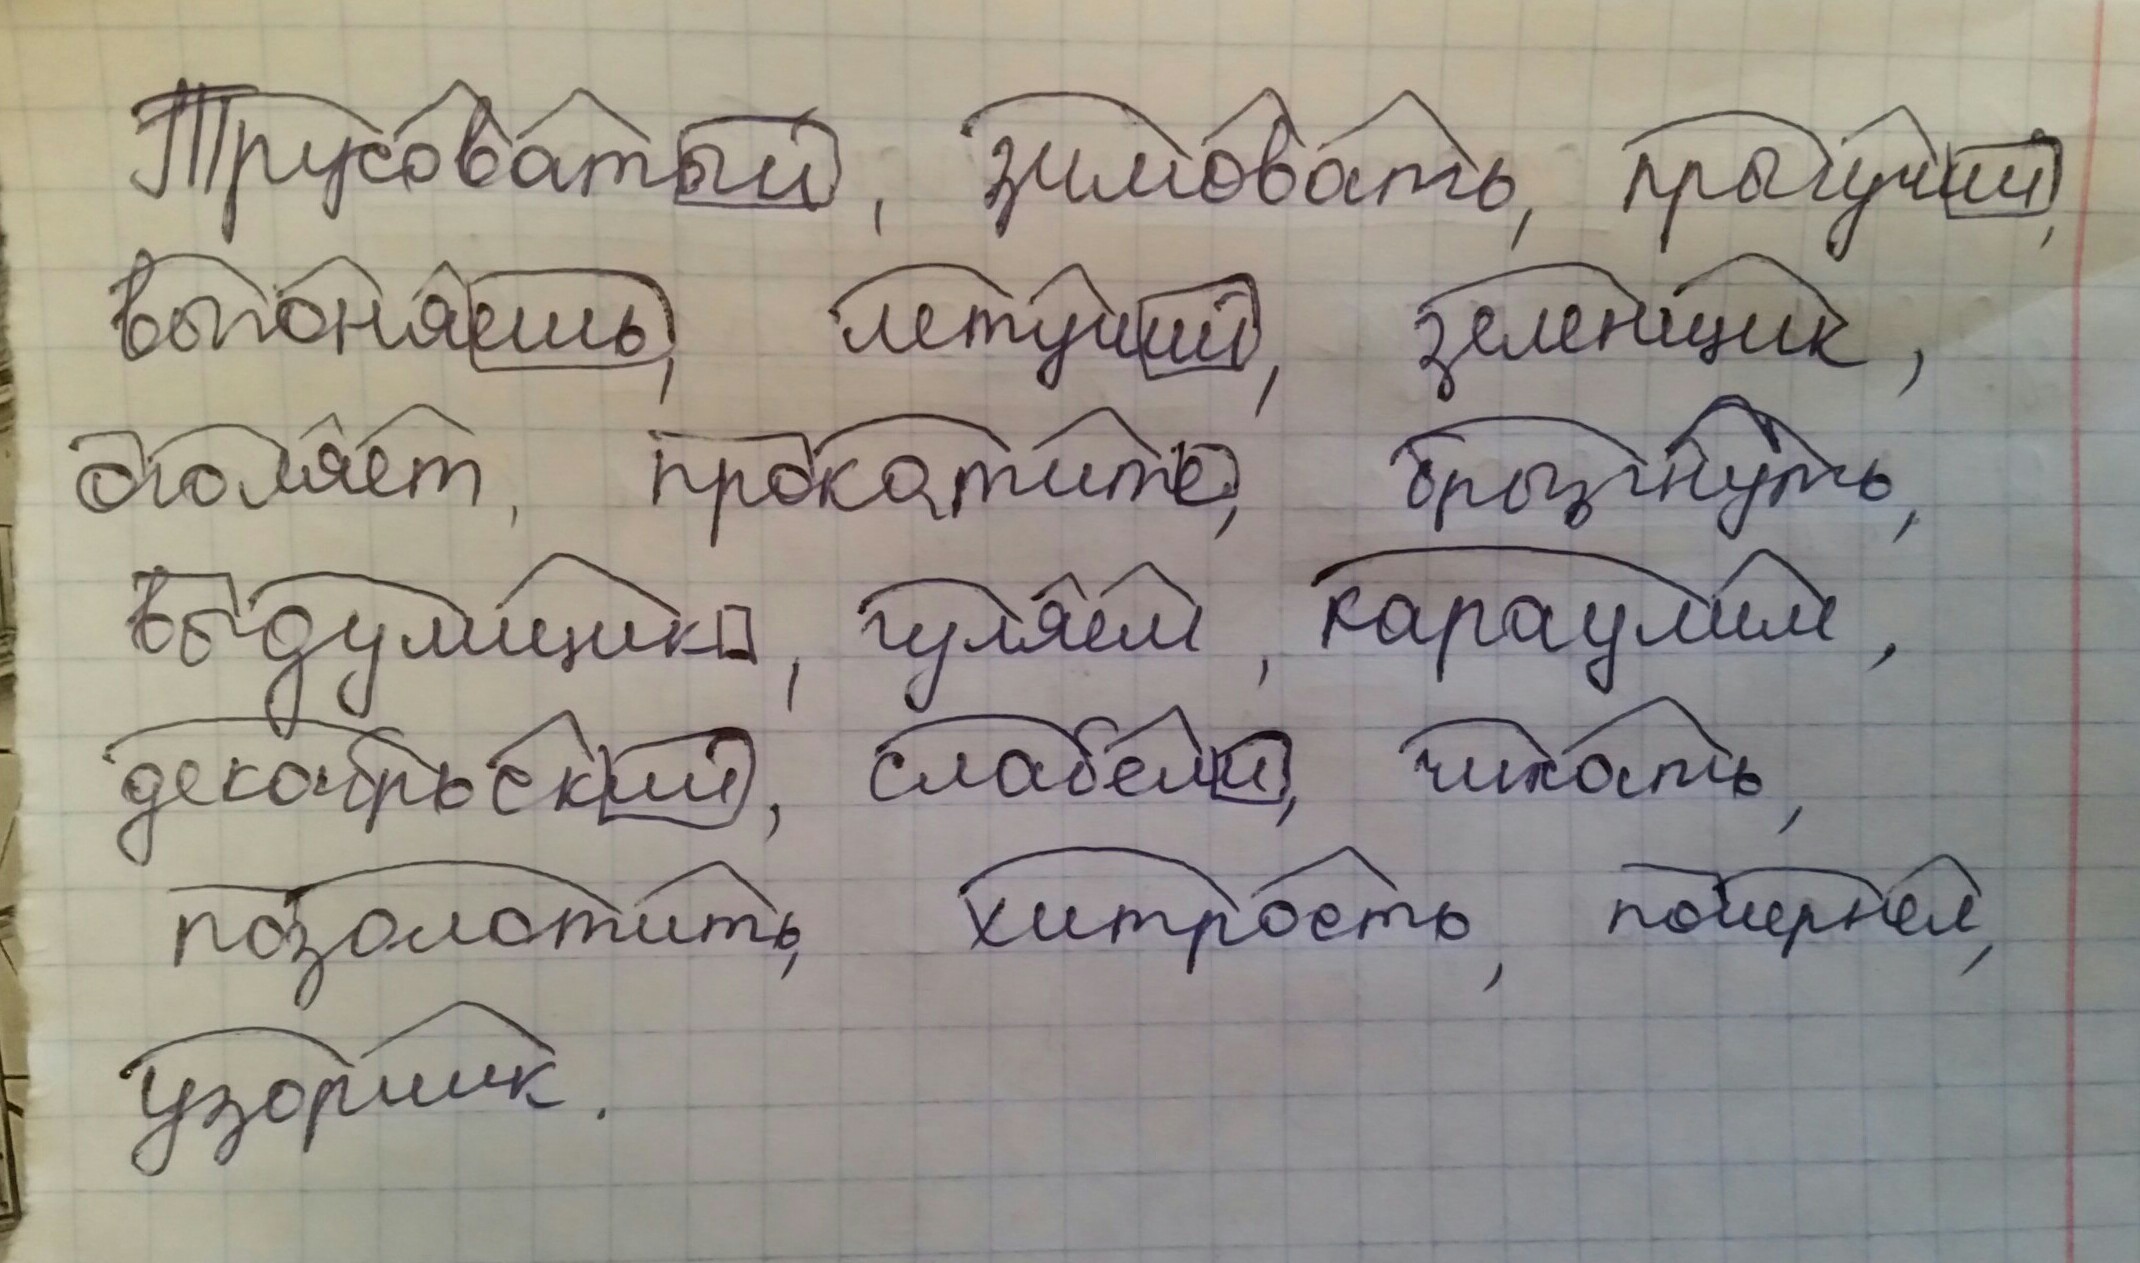 Трусоватый, зимовать, прыгучий,
выгоняешь, летучий, зеленщик,
оголяет, прокатите, брызгнуть,
выдумщик, гуляем, караулим,
декабрьский, слабели, чихать,
позолотить, хитрость, почернел,
узорчик.